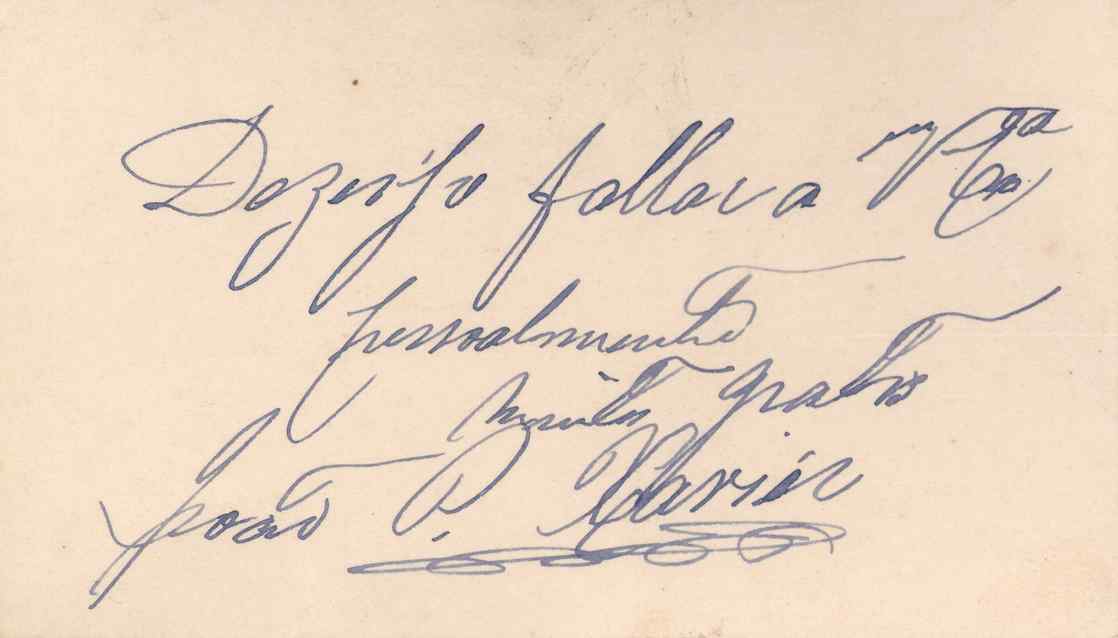 Dezerjo fallar a V Exa
pessoalmente
muito grato
João P. Xavier